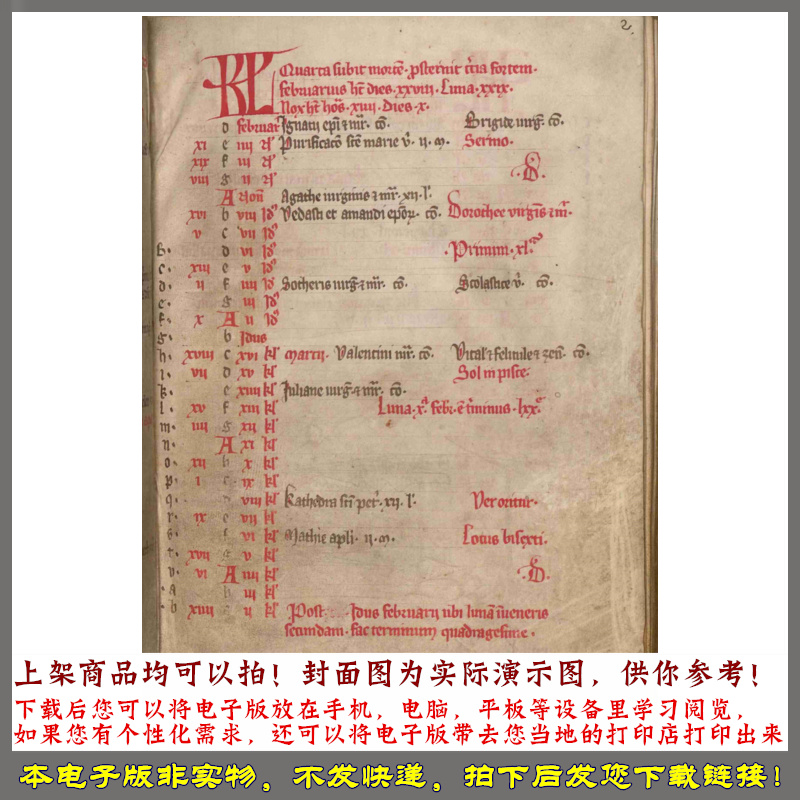 2
KL Quarta subit mortē· ꝓsternit t̄cia fortem·
februarius hꝫ dies·xxviii·Luna·xxix·
Nox hꝫ hōs·xiiii·Dies·x·
d februar' Ignatii epī ⁊ mr̄· cō· Brigide uirg̅· cō·
xi e iiii Purificacō scē marie v̄· ii·m· Sermo·
xix f iii
viii g ii
A Agathe uirginis ⁊ mr̄·xii·l'·
xvi b viii Id' Vedasti et amandi ep̄oꝝ· cō· Dorothee virgīs ⁊ m̄·
v c vii Id'
b· d vi Id' ·Primum·xl·
c· xiii e v Id'
d· ii f iiii Id' Sotheris uirg̅ ⁊ mr̄· cō· Scolastice v̄· cō·
e· g iii Id'
f· x A ii Id'
g· b Idus
h· xviii c xvi kl' martii· Valentini mr̄· cō· Vital' ⁊ felicule ⁊ zen̄· cō·
i· vii d xv kl' Sol in pisce·
k· e xiiii kl' Iuliane uirg̅ ⁊ mr̄· cō·
l· xv f xiii kl' Luna·x·febr·ē t'minus·lxx·
m· iiii g xii kl'
n· A xi kl'
o· xii b x kl'
p· i c ix kl'
q· d viii kl' Kathedra scī petr'·xii·l'· Ver oritur·
r· ix e vii kl'
f vi kl' Mathie apli· ii·m· Locus bisexti·
t· xvii g v kl'
v· vi A iiii kl'
a· b iii kl'
b xiiii c ii kl' Post Idus februarii ubi lunā īueneris
secundam·fac terminum quadragesime·
上架商品均可以拍！封面图为实际演示图，供你参考！
下载后您可以将电子版放在手机，电脑，平板等设备里学习阅览，
如果您有个性化需求，还可以将电子版带去您当地的打印店打印出来
本电子版非实物，不发快递，拍下后发您下载链接！